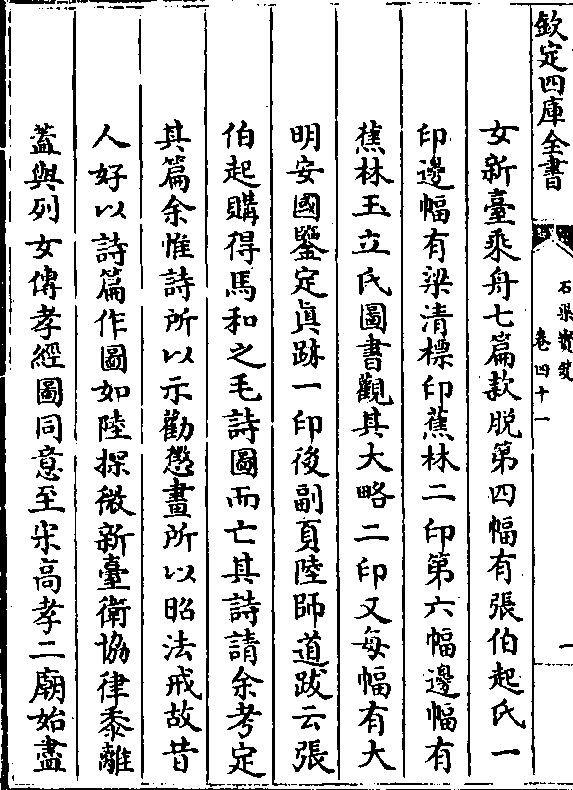 欽定四庫全書
石渠寳笈
卷四十一
一
女新臺乘舟七篇款脱第四幅有張伯起氏一
印邊幅有梁清標印蕉林二印第六幅邊幅有
蕉林玉立氏圖書觀其大略二印又每幅有大
明安國鑒定眞跡一印後副頁陸師道跋云張
伯起購得馬和之毛詩圖而亡其詩請余考定
其篇余惟詩所以示勸懲畫所以昭法戒故昔
人好以詩篇作圖如陸探微新臺衛協律黍離
葢與列女傳孝經圖同意至宋高孝二廟始盡